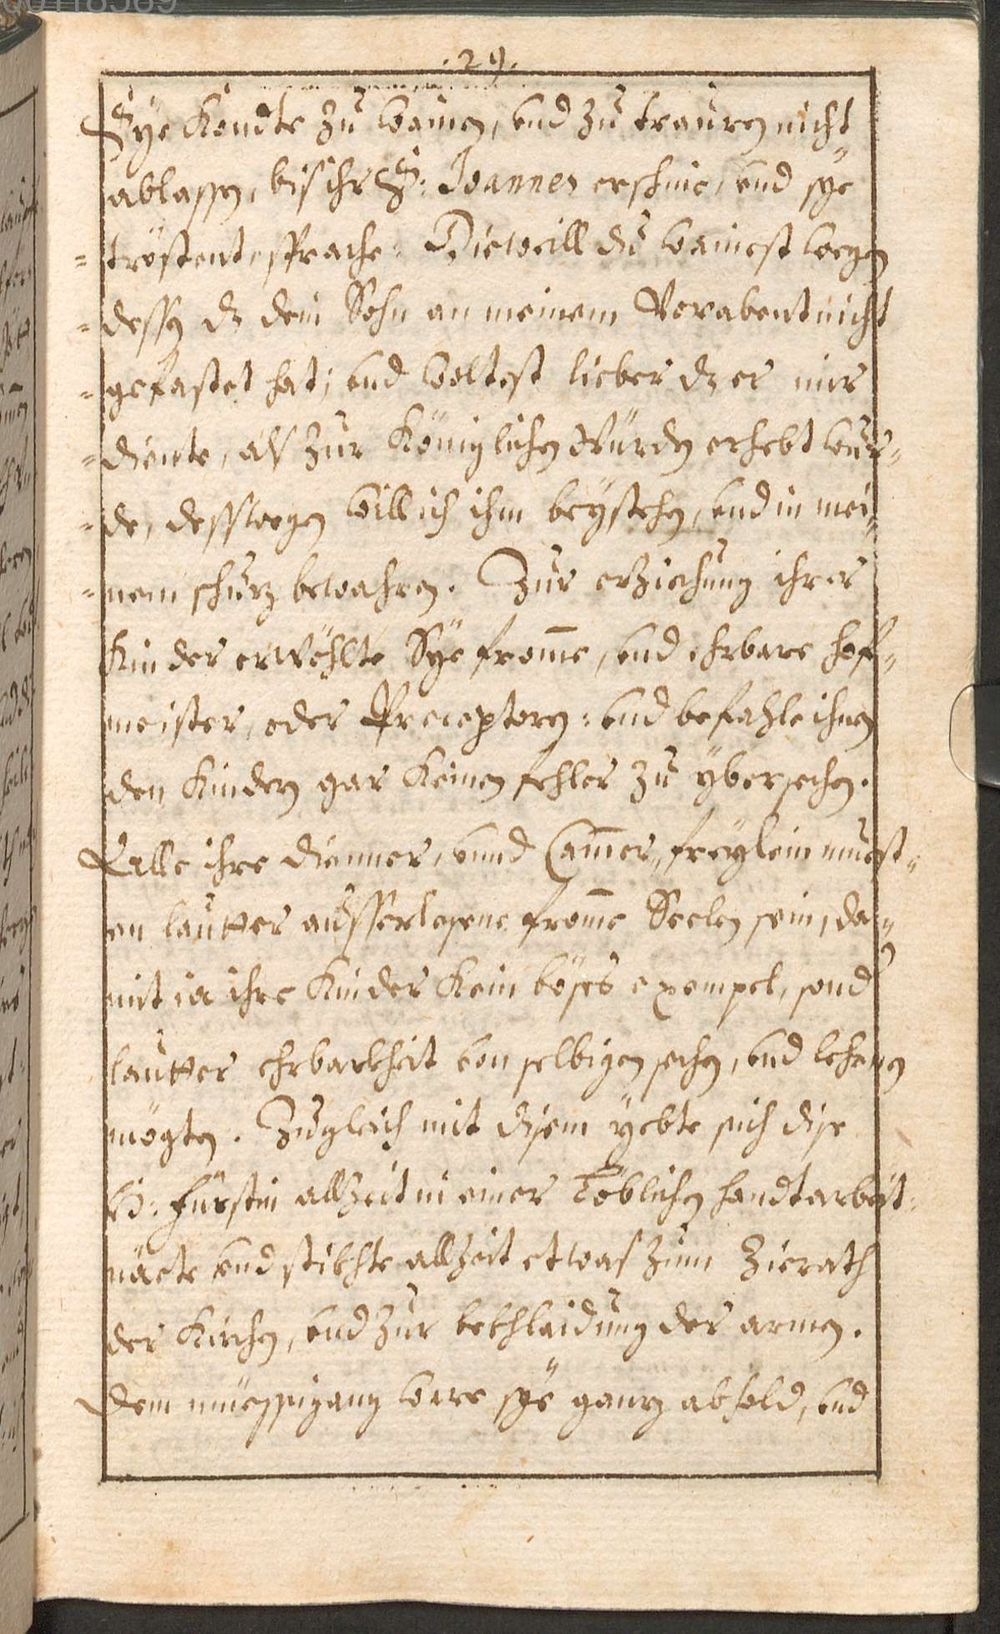 .29.
Sÿe Kondte zu wainen, und zu trauren nicht
ablassen, bis ihr S: Joannes erschine, und sÿe
tröstent, sprache: Dieweill du wainest wegen
dessen dz dein Sohn an meinem Vorabent nicht
gefastet hat; und woltest lieber dz er mir
diente, als zur Königlichen Würden erhebt wur-
de, desswegen will ich ihm beÿstehen, und in mei-
nem schuz bewahren. Zur erziechung ihrer
Kinder erwöhlte Sÿe from̄e, und ehrbare hof-
meister, oder Preceptoren: und befahle ihnen
den Kindern gar Keinen fehler zu ÿbersechen.
Alle ihre dienner, unnd Cam̄er, freÿlein muest-
en lautter ausserlesene from̄e Seelen sein, da-
mit ia ihre Kinder Kein böses exempel, sond
lautter ehrbarkheit von selbigen sechen, und lehrnen
mögten. Zugleich mit disem ÿebte sich dise
H: fürstin allzeit in einer Löblichen handtarbeit:
näete und stikhte allzeit etwas zum Zierath
der Kirchen, und zur bekhlaidung der armen.
Dem müessigang ware sÿe ganz abhold, und